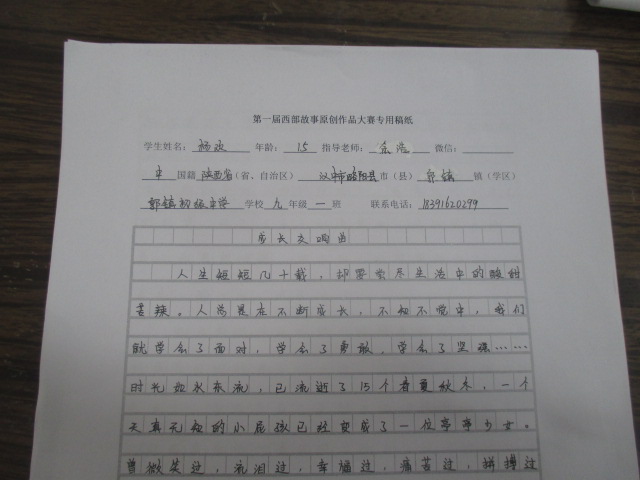 第一届西部故事原创作品大赛专用稿纸
学生姓名：杨政 年龄：15 指导老师：余浩 微信：
中 国籍 陕西省（省、自治区） 汉中市略阳县 市（县） 郭镇 镇（学区）
郭镇初级中学 学校 九 年级 一 班 联系电话：18391620299
成长交响曲
人生短短几十载，却要尝尽生活中的酸甜
苦辣。人总是在不断成长，不知不觉中，我们
就学会了面对，学会了勇敢，学会了坚强……
时光如水东流，已流逝了15个春夏秋冬，一个
天真无知的小屁孩已经变成了一位亭亭少女。
曾微笑过，流泪过，幸福过，痛苦过，拼搏过